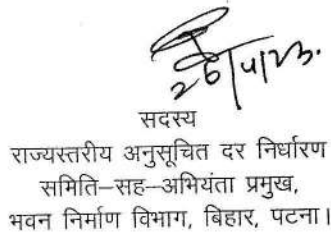 26/4/23.
सदस्य
राज्यस्तरीय अनुसूचित दर निर्धारण
समिति–सह–अभियंता प्रमुख,
भवन निर्माण विभाग, बिहार, पटना।